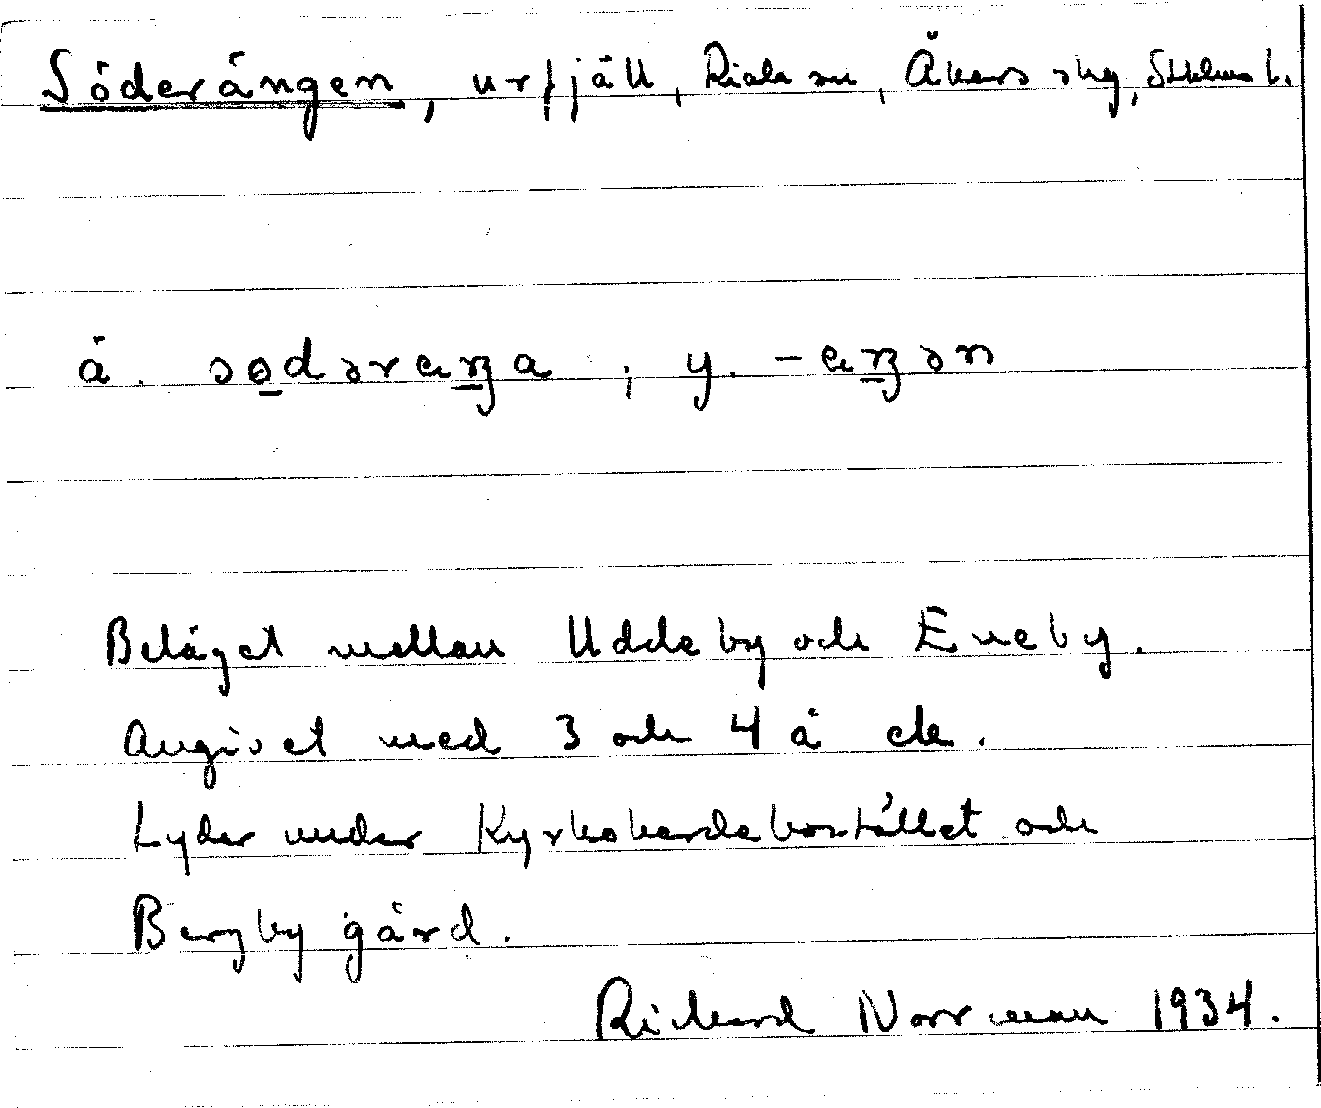 Söderängen, urfjäll, Riala sn, Åkers skg, Sthlms l.
ä. sødəræŋa ; y. -æŋən
Beläget mellan Uddeby och Eneby.
Angivet med 3 och 4 å ek.
Lyder under Kyrkoherdebostället och
Bergby gård.
Rickard Norrman 1934.